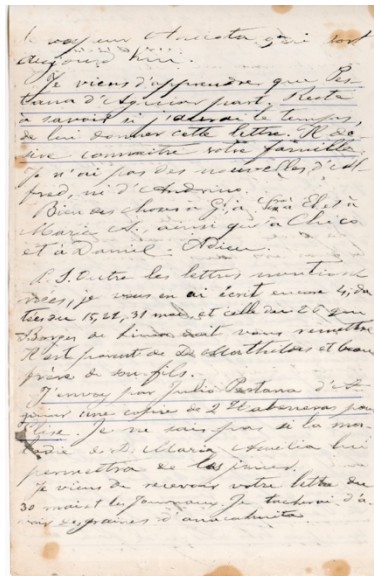 le vapeur qui sort
aujourd'hui.
Je viens d'apprendre que Pes-
tana d'Aguiar part. Reste
à savoir si j'aurai le temps,
de lui donner cette lettre. Il dé-
sire connaître votre famille
Je n'ai pas des nouvelles d'Al-
fred, ni d'
Bien des choses à G, à El et à
Maria A., ainsi qu'à Chico
et à Daniel. Adieu.
P. S. Outre les lettres mention-
nées, je vous en ai écrit encore 4, da-
tées du 15, 21, 31 mai, et celle du 26 que
Borges de Lima doit vous remettre
Il est parent de et beau
frère de fils.
J'envoie par Julio Pestana d'A-
guiar une copie de 2 Habaneras pour
Elise. Je ne sais pas si la ma-
ladie de D. Maria Amelia lui
permettra de les
Je viens de recevoir votre lettre du
30 mai et les Journaux. Je tacherai d'a-
voir des graines d'